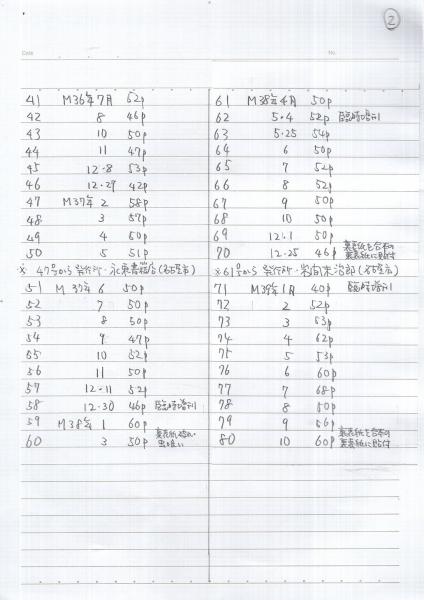 ②
Date
No.
41 M36年7月 52p
42 8 46p
43 10 50p
44 11 47p
45 12・8 53p
46 12・29 42p
47 M37年 2 58p
48 3 57p
49 4 50p
50 5 51p
※ 47号から 発行所・永東書店(名古屋市)
51 M37年 6 50p
52 7 50p
53 8 50p
54 9 47p
55 10 52p
56 11 50p
57 12・11 52p
58 12・30 46p 臨時増刊
59 M38年 1 60p
60 3 50p 裏表紙 虫喰い
61 M38年4月 50p
62 5・4 52p 臨時増刊
63 5・25 54p
64 6 50p
65 7 52p
66 8 52p
67 9 50p
68 10 50p
69 12・1 50p
70 12・25 46p 裏表紙を合本の裏表紙に貼付
※61号から 発行所・末治郎(名古屋市)
71 M39年1月 40p 臨時増刊
72 2 52p
73 3 53p
74 4 62p
75 5 53p
76 6 60p
77 7 68p
78 8 50p
79 9 56p
80 10 60p 裏表紙を合本の裏表紙に貼付